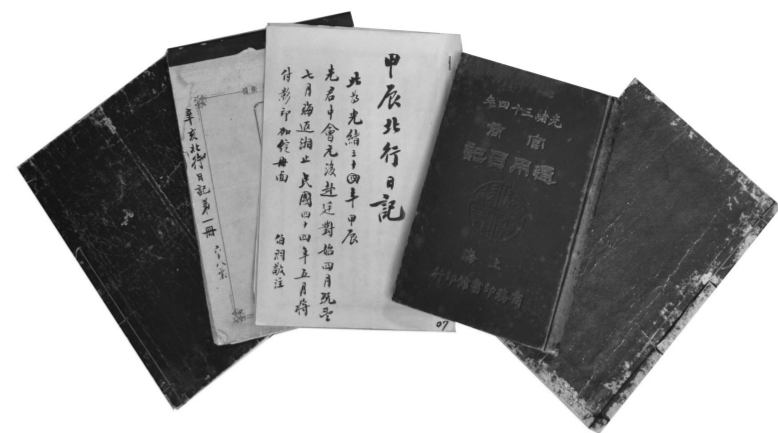 辛亥北行日記第一冊
甲辰北行日記
此為光緒三十四年甲辰
先君中會元後赴廷對始四月既望
七月海返湘止民國四十四年五月將
付影印加冊面
伯羽敬注
07
光緒三十四年
官商
通用日記
上海
商務印書館印行